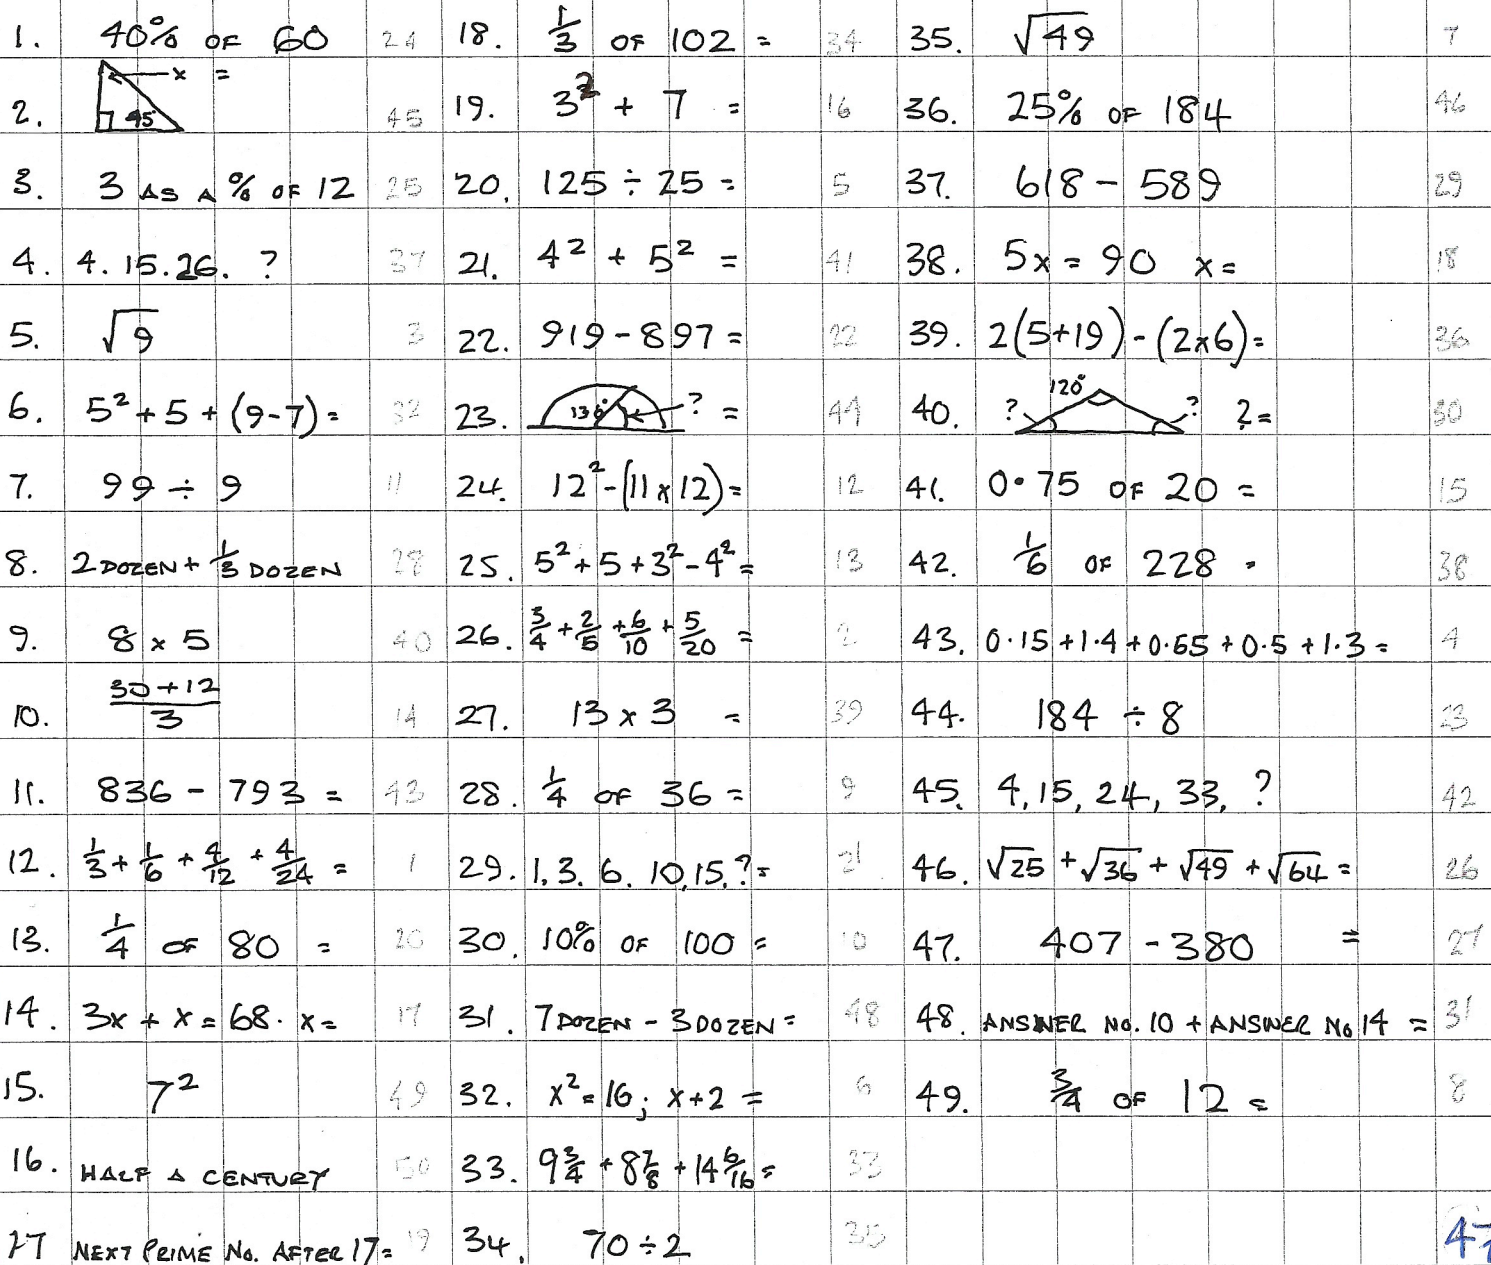 1. 40% OF 60 24
2. x = 45 45
3. 3 AS A % OF 12 25
4. 4. 15. 26. ? 37
5. √9 3
6. 5² + 5 + (9-7) = 32
7. 99 ÷ 9 11
8. 2 DOZEN + 1/3 DOZEN 28
9. 8 x 5 40
10. 30+12/3 14
11. 836 - 793 = 43
12. 1/3 + 1/6 + 4/12 + 4/24 = 1
13. 1/4 OF 80 = 20
14. 3x + x = 68. x = 17
15. 7² 49
16. HALF A CENTURY 50
17 NEXT PRIME No. AFTER 17 = 19
18. 1/3 OF 102 = 34
19. 3² + 7 = 16
20. 125 ÷ 25 = 5
21. 4² + 5² = 41
22. 919 - 897 = 22
23. 136° ? = 44
24. 12² - (11 x 12) = 12
25. 5² + 5 + 3² - 4² = 13
26. 3/4 + 2/5 + 6/10 + 5/20 = 2
27. 13 x 3 = 39
28. 1/4 OF 36 = 9
29. 1, 3. 6. 10, 15, ? = 21
30. 10% OF 100 = 10
31. 7 DOZEN - 3 DOZEN = 48
32. x² = 16; x+2 = 6
33. 9 3/4 + 8 7/8 + 14 6/16 = 33
34. 70 ÷ 2 35
35. √49 7
36. 25% OF 184 46
37. 618 - 589 29
38. 5x = 90 x = 18
39. 2(5+19) - (2x6) = 36
40. 120° ? ? ? = 30
41. 0.75 OF 20 = 15
42. 1/6 OF 228 = 38
43. 0.15 + 1.4 + 0.65 + 0.5 + 1.3 = 4
44. 184 ÷ 8 23
45. 4, 15, 24, 33, ? 42
46. √25 + √36 + √49 + √64 = 26
47. 407 - 380 = 27
48. ANSWER No. 10 + ANSWER No 14 = 31
49. 3/4 OF 12 = 8